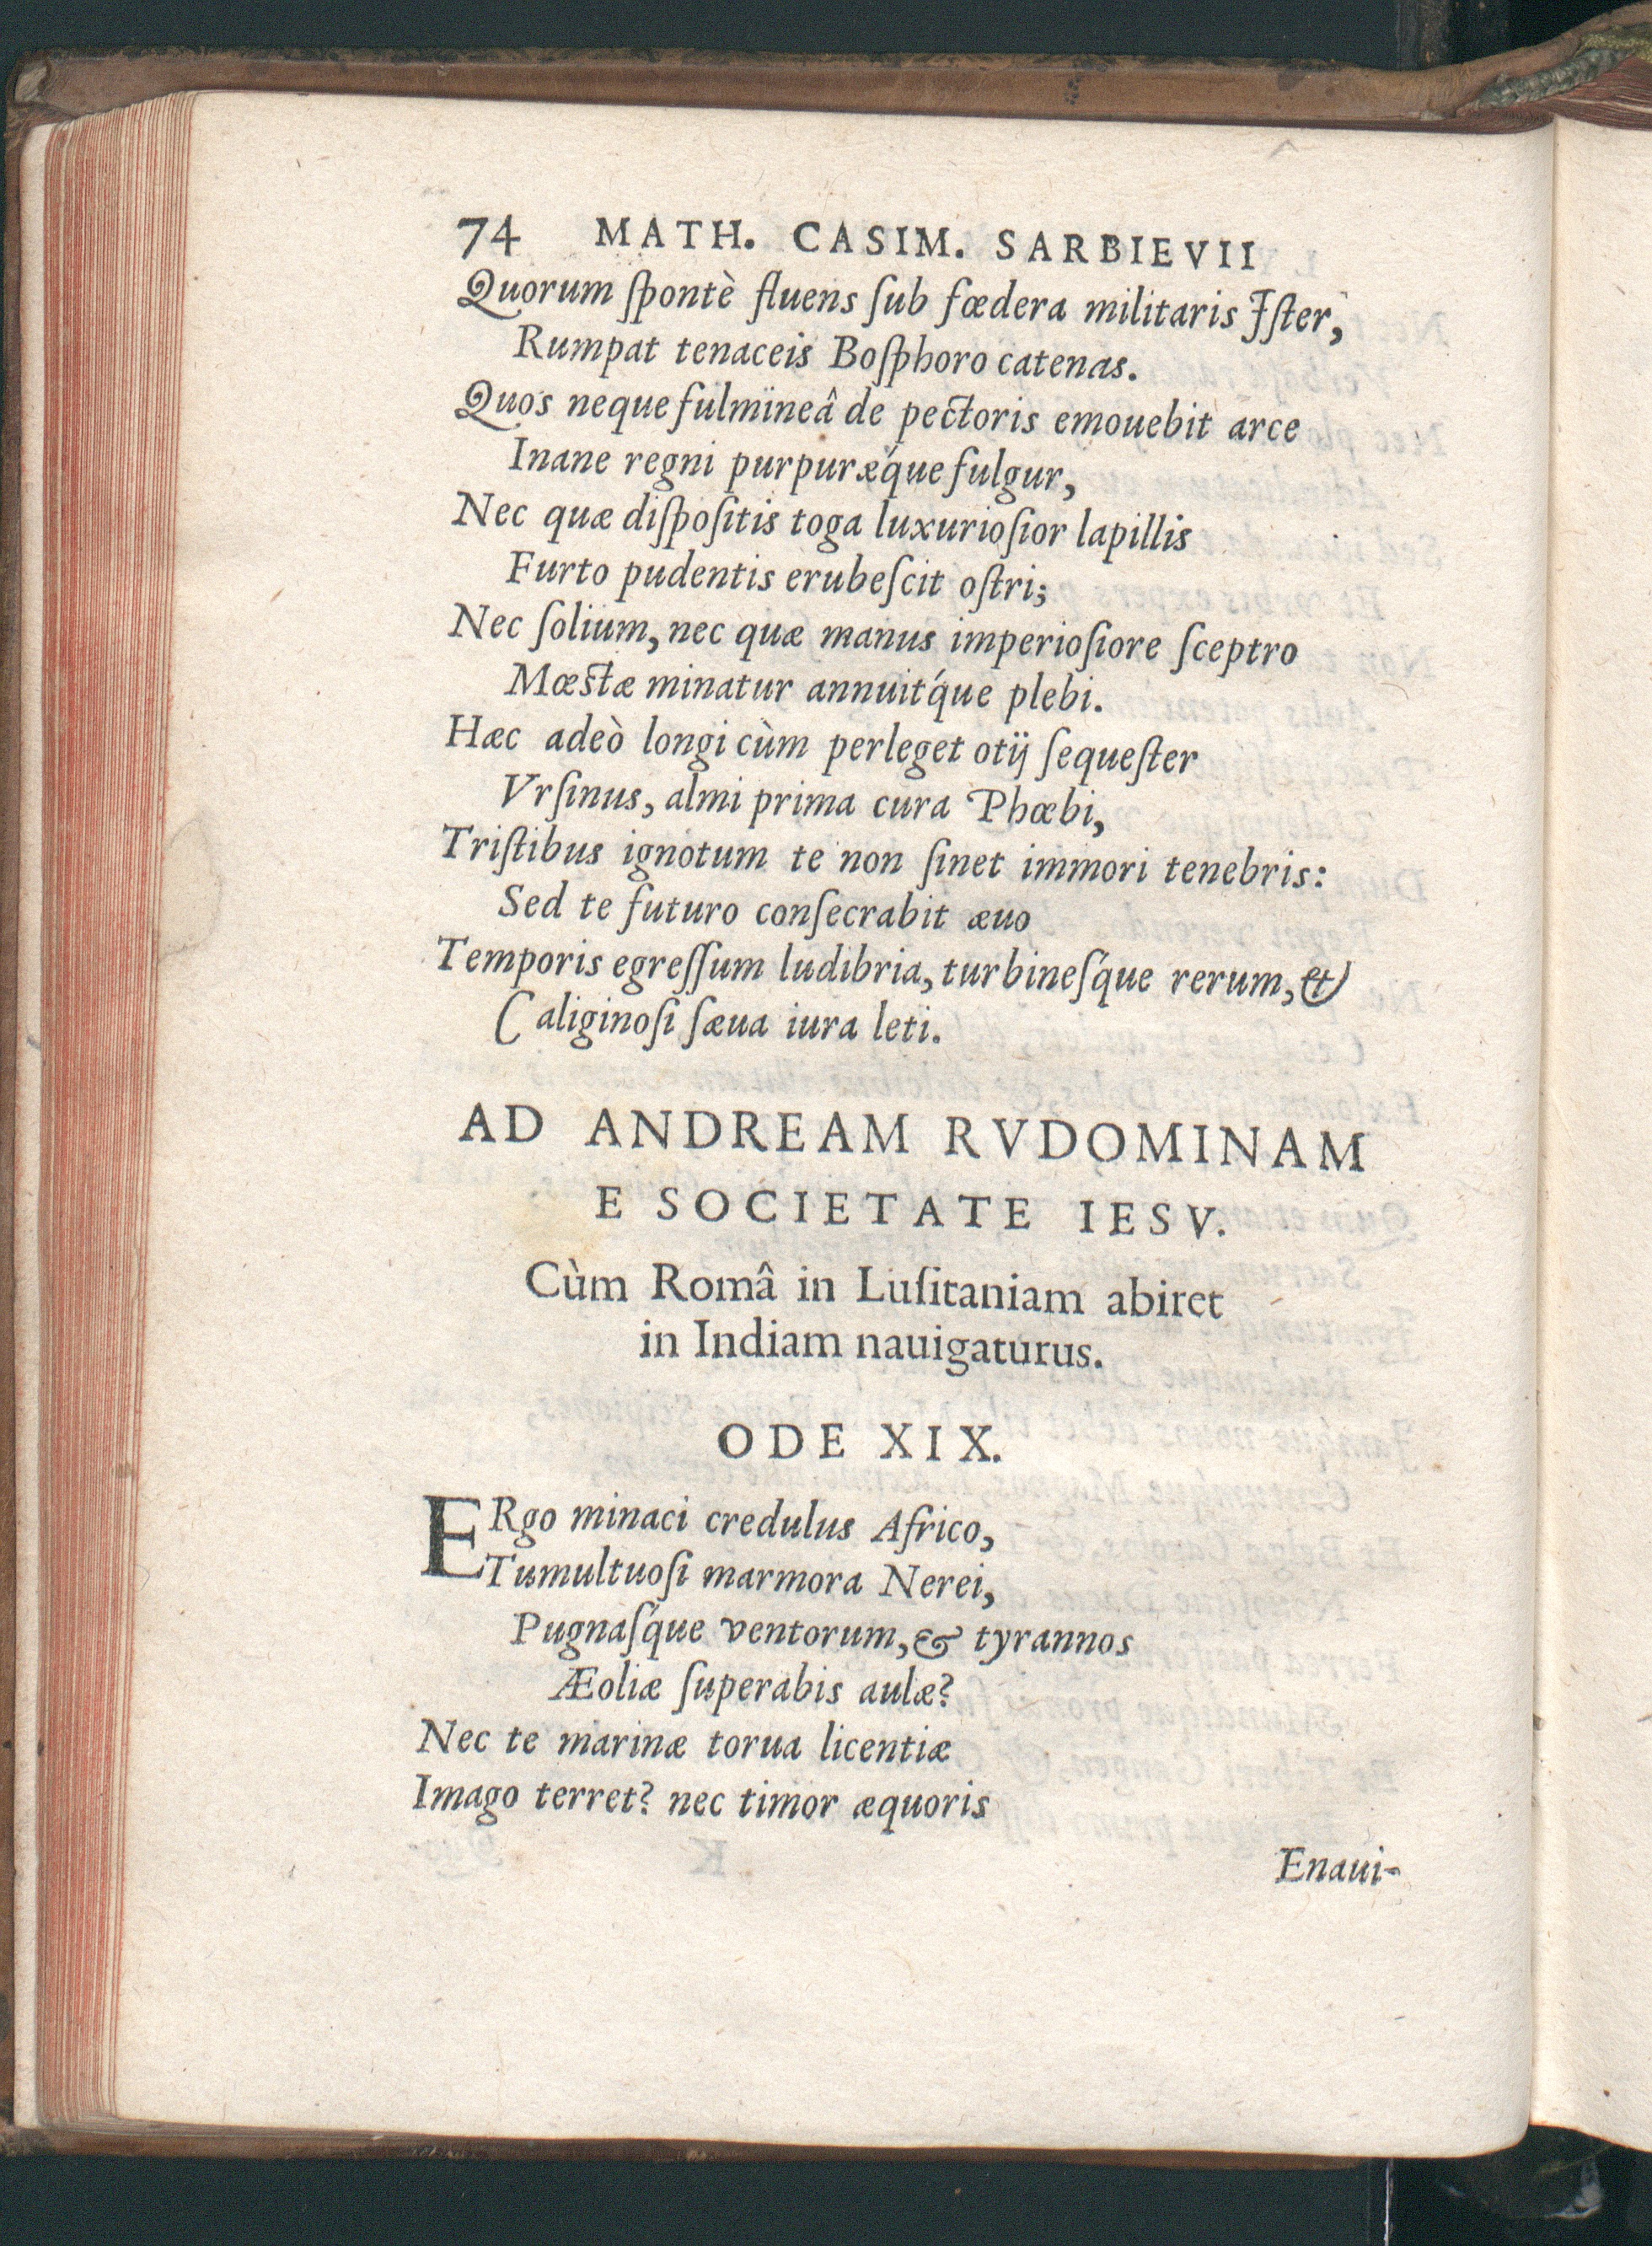 74 MATH. CASIM. SARBIEVII
Quorum ſpontè fluens ſub fœdera militaris Iſter,
Rumpat tenaceis Boſphoro catenas.
Quos neque fulmineâ de pectoris emouebit arce
Inane regni purpurǽque fulgur,
Nec quæ diſpoſitis toga luxurioſior lapillis
Furto pudentis erubeſcit oſtri;
Nec ſolium, nec quæ manus imperioſiore ſceptro
Mœstæ minatur annuitq́ue plebi.
Hæc adeò longi cùm perleget otij ſequeſter
Vrſinus, almi prima cura Phœbi,
Triſtibus ignotum te non ſinet immori tenebris:
Sed te futuro conſecrabit æuo
Temporis egreſſum ludibria, turbineſq́ue rerum, &
Caliginoſi ſæua iura leti.
AD ANDREAM RVDOMINAM
E SOCIETATE IESV.
Cùm Româ in Luſitaniam abiret
in Indiam nauigaturus.
ODE XIX.
ERgo minaci credulus Africo,
Tumultuoſi marmora Nerei,
Pugnaſq́ue ventorum, & tyrannos
Æoliæ ſuperabis aulæ?
Nec te marinæ torua licentiæ
Imago terret? nec timor æquoris
Enaui-